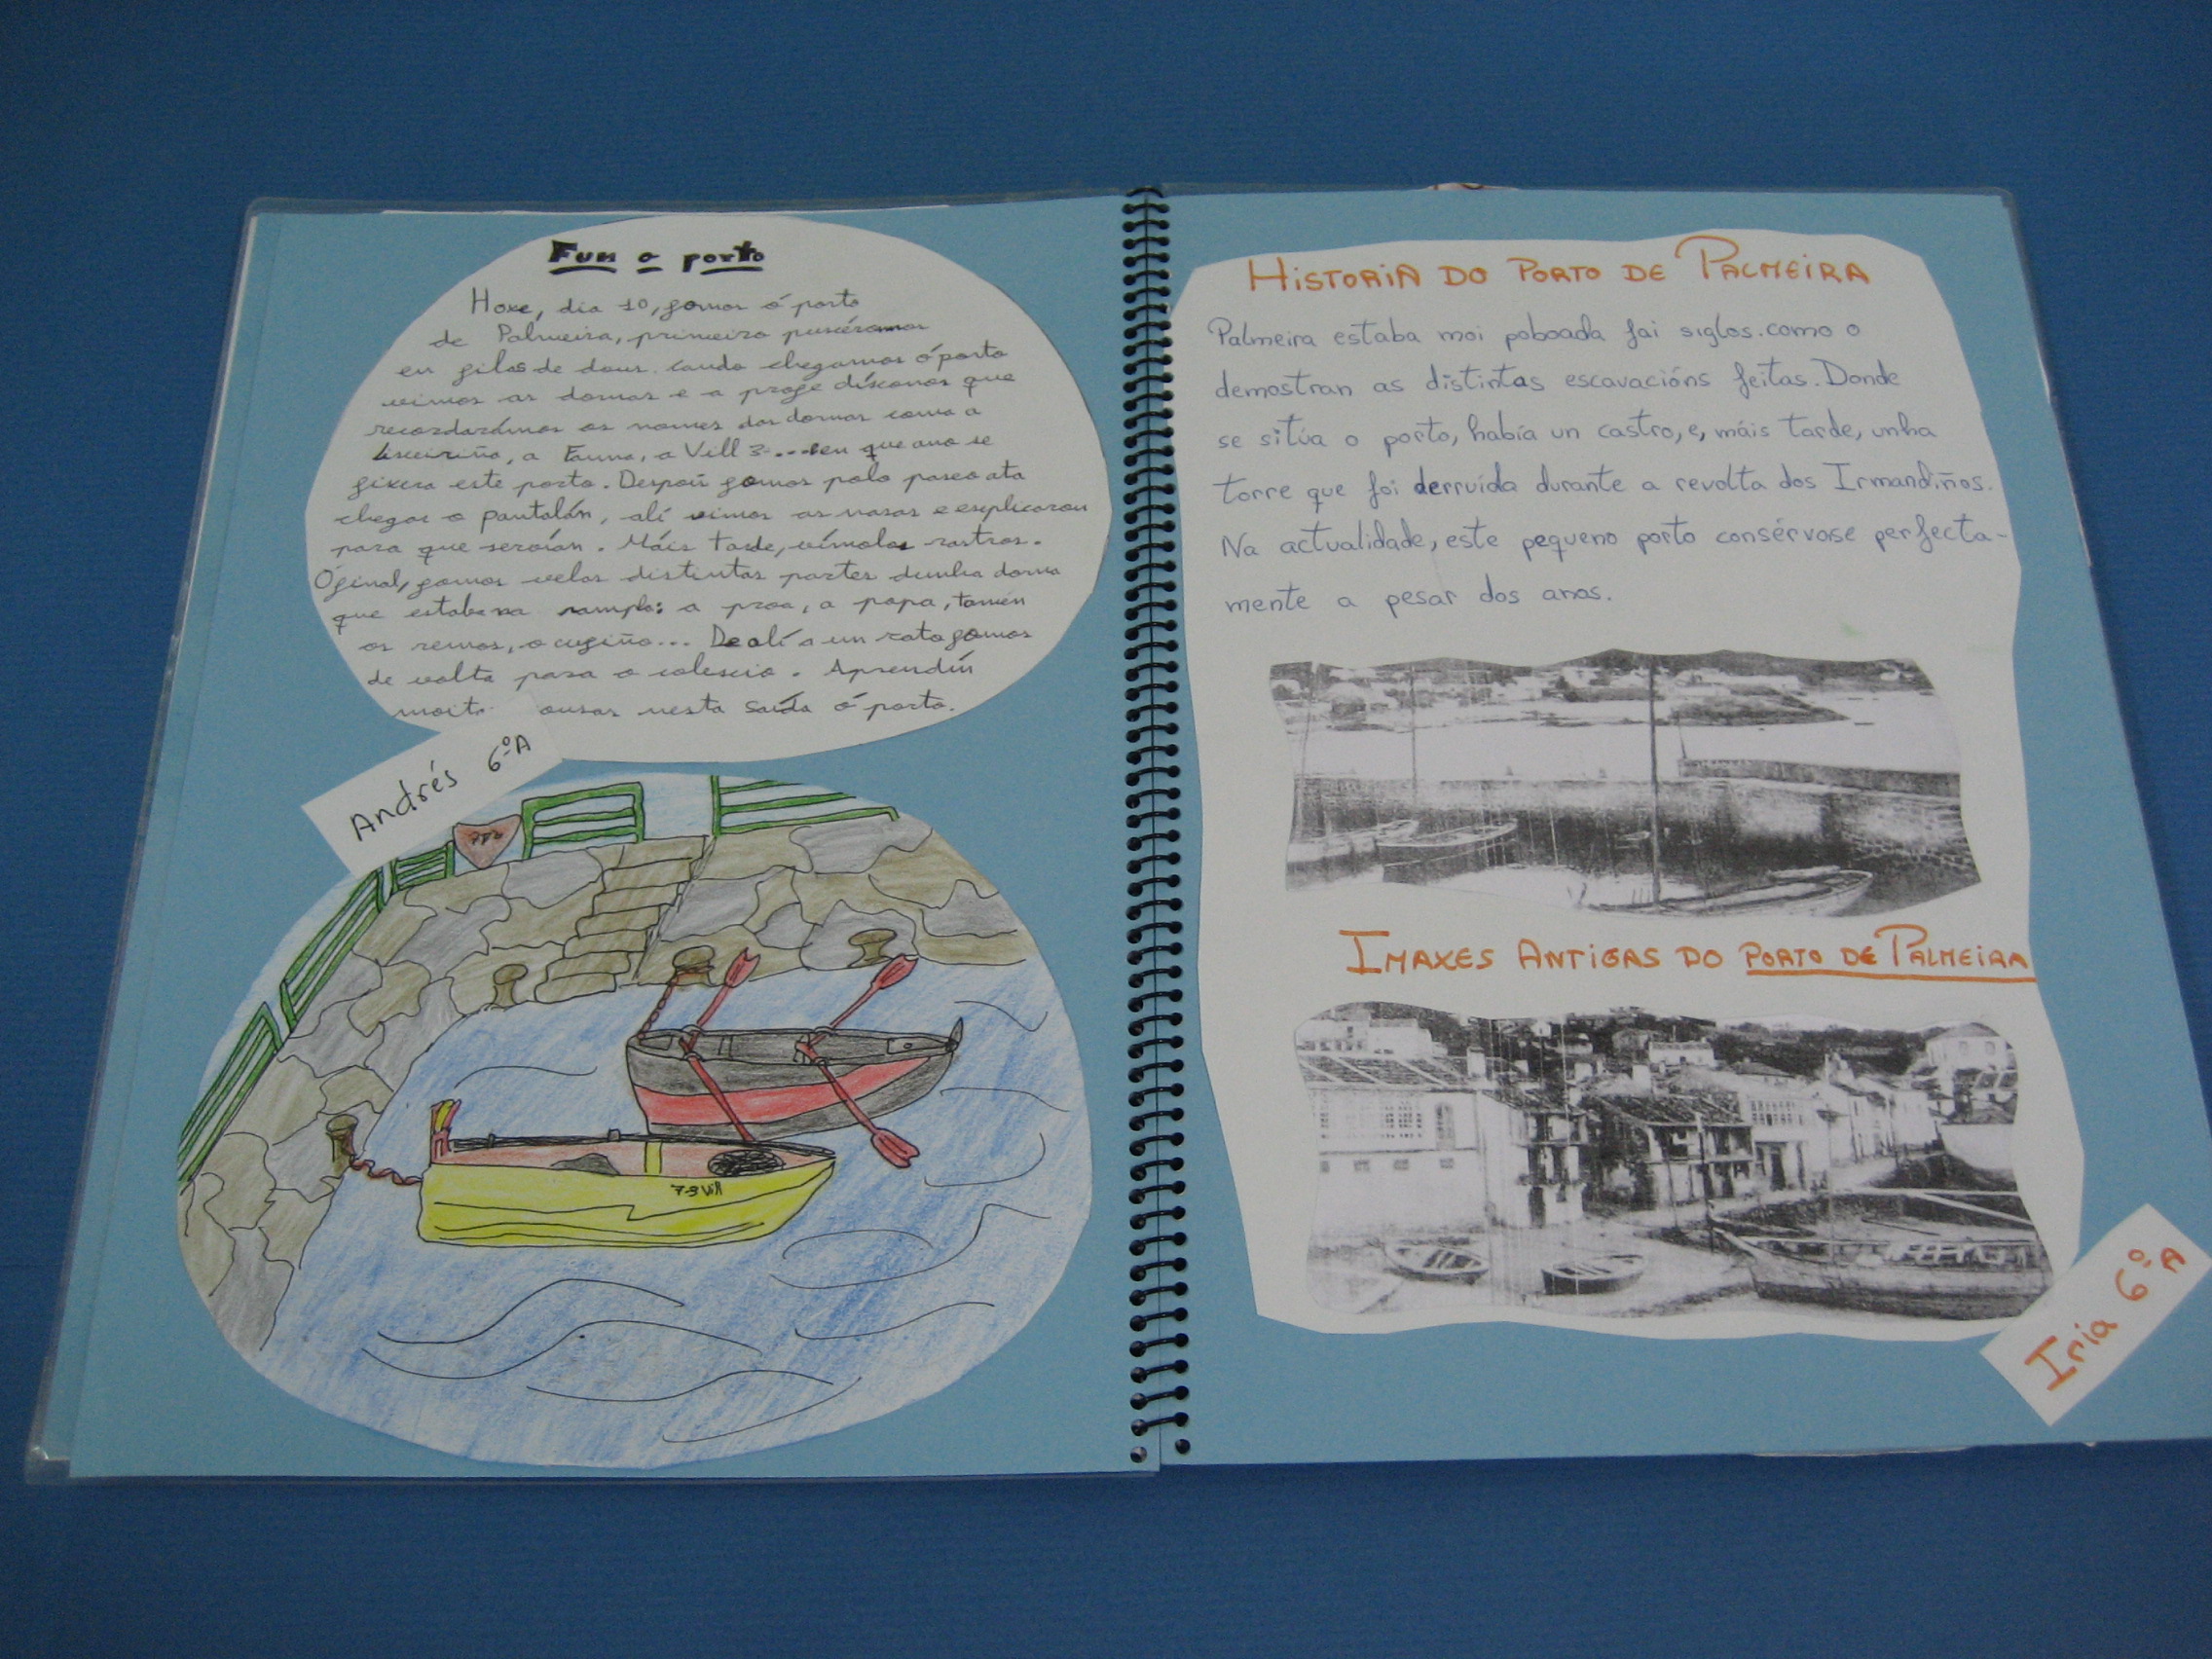 Fun o porto
Hoxe, dia 10, fomos ó porto
de Palmeira, primeiro puxéramonos
en filas de dous. Cando chegamos ó porto
vimos as dornas e a profe díxonos que
recordarámos os nomes das dornas como a
a Fauna, a Vill 3 .... en que ano se
fixera este porto. Despois fomos polo paseo ata
chegar o pantalán, alí vimos as nasas e esplicaron
para que servían. Máis tarde, vímolos rastros.
Ó final, fomos velas distintas partes dunha dorna
que estaba na rampla: a proa, a popa, tamén
os remos, o cugiño... De alí a un rato fomos
de volta para o colexio. Aprendín
moitas cousas nesta saída ó porto.
Andrés 6º A
7-3 Vill
HISTORIA DO PORTO DE PALMEIRA
Palmeira estaba moi poboada fai siglos. como o
demostran as distintas escavacións feitas. Donde
se sitúa o porto, había un castro, e, máis tarde, unha
torre que foi derruída durante a revolta dos Irmandiños.
Na actualidade, este pequeno porto consérvase perfecta-
mente a pesar dos anos.
IMAXES ANTIGAS DO PORTO DE PALMEIRA
Iria 6º A